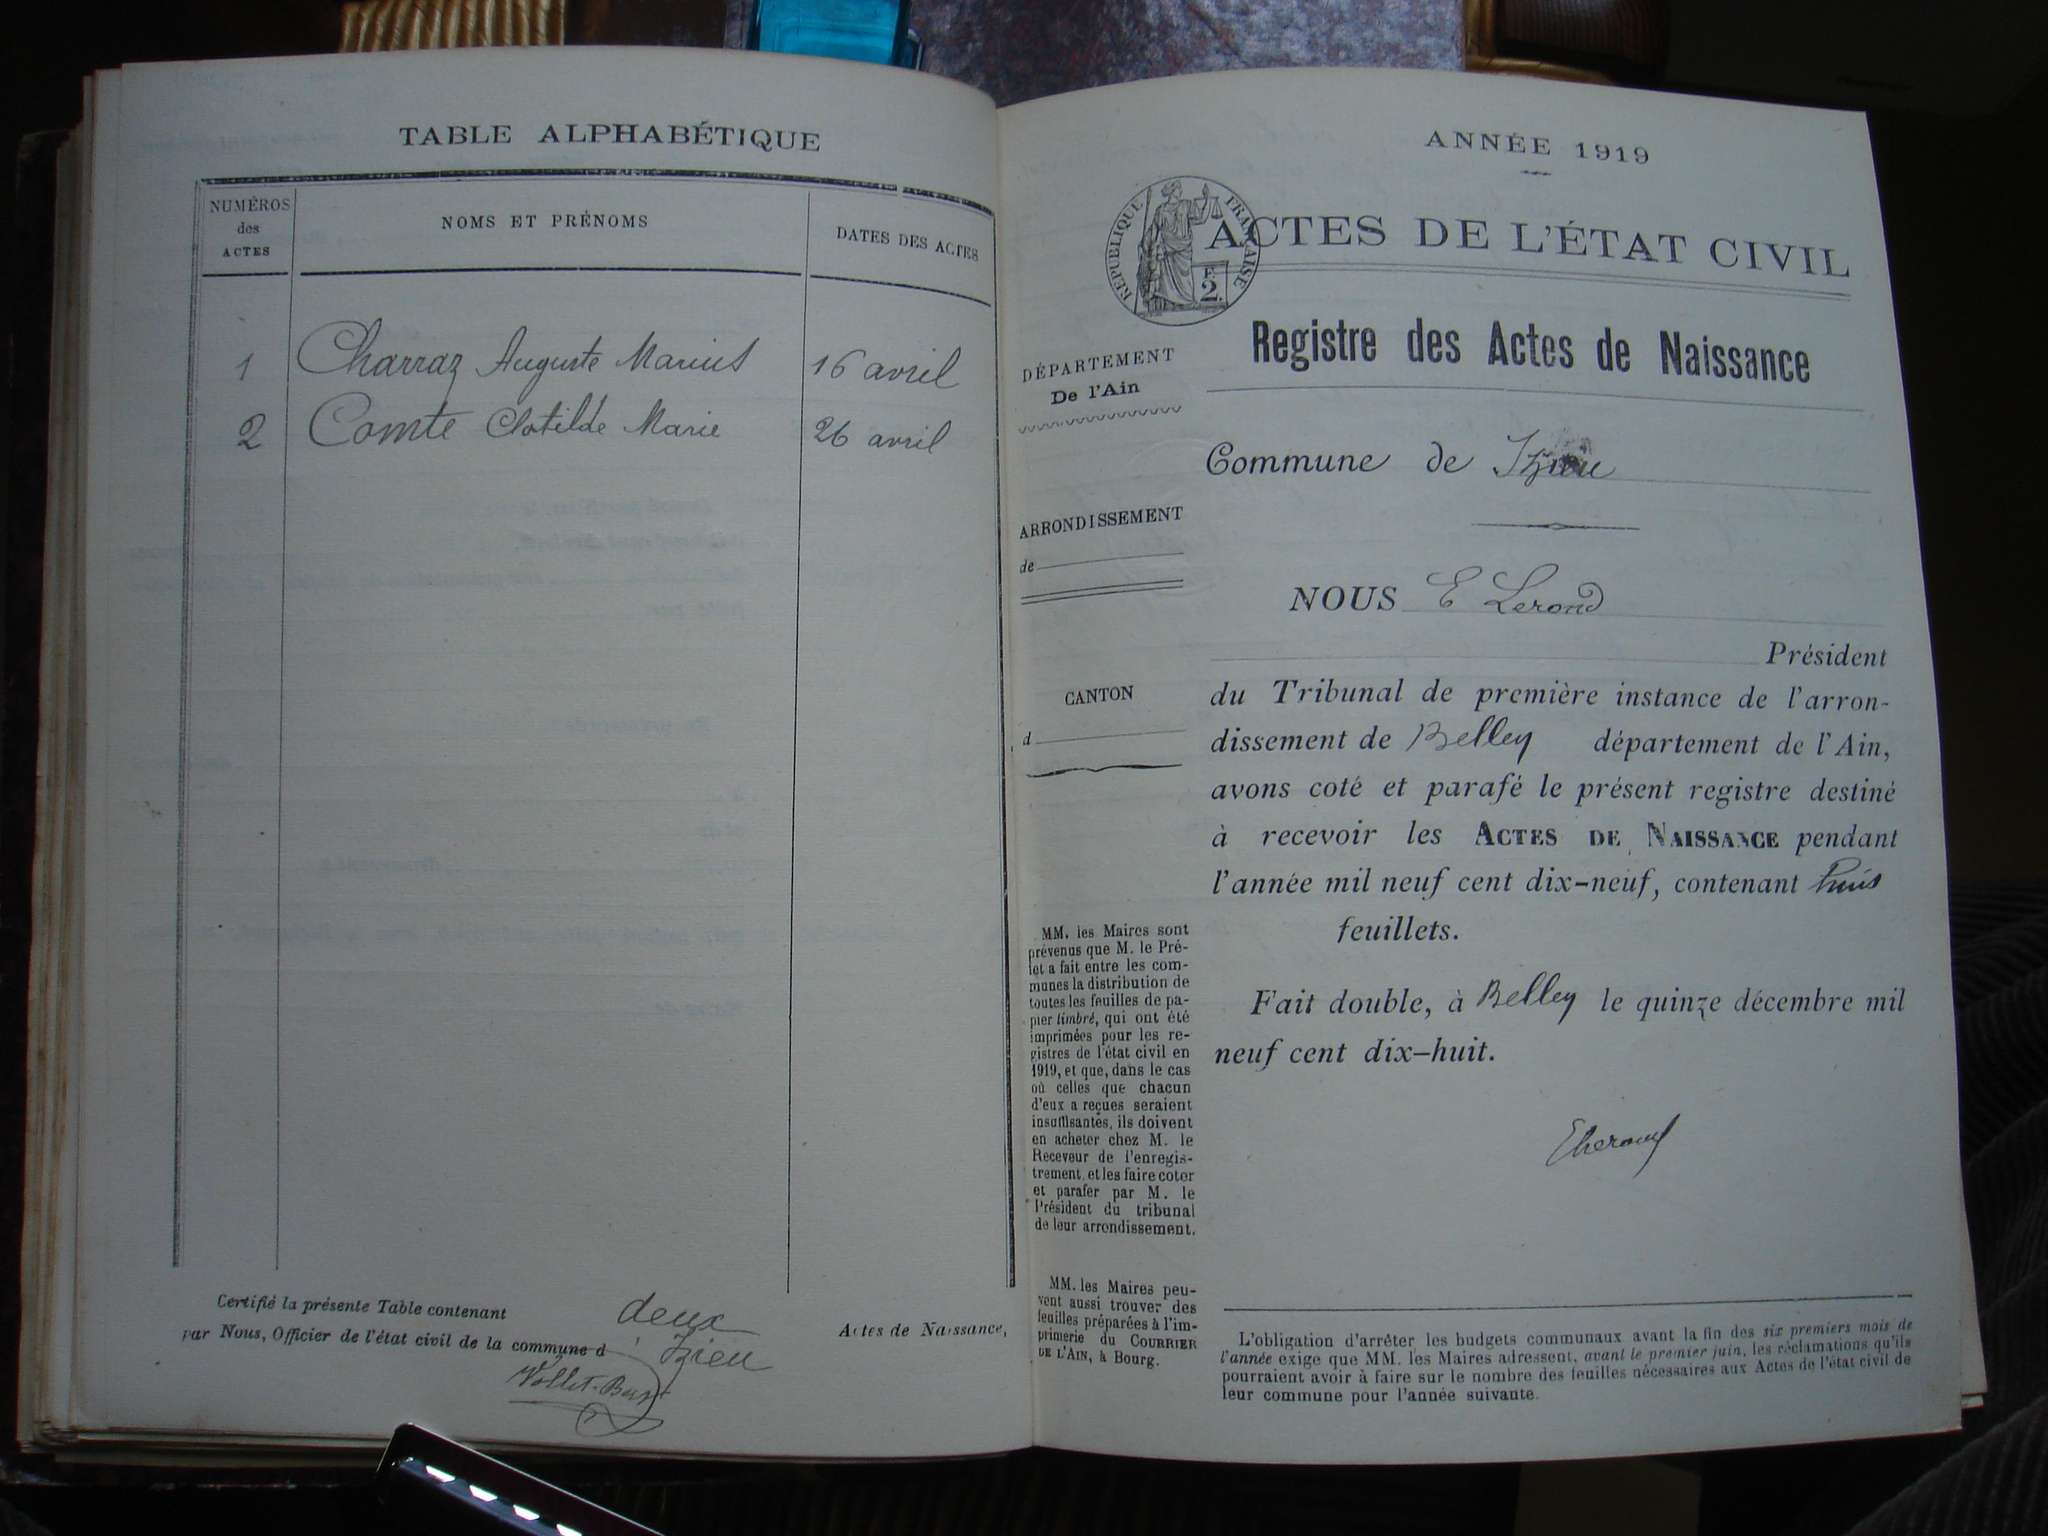 TABLE ALPHABÉTIQUE
NUMÉROS
des
ACTES
NOMS ET PRÉNOMS
DATES DES ACTES
1 Charraz Auguste Marius 16 avril
2 Comte Clotilde Marie 26 avril
Certifié la présente Table contenant deux Actes de Naissance,
par Nous, Officier de l'état civil de la commune d'Izieu
ANNÉE 1919
RÉPUBLIQUE FRANÇAISE
F.
2.
ACTES DE L'ÉTAT CIVIL
Registre des Actes de Naissance
DÉPARTEMENT
De l'Ain
Commune de Izieu
ARRONDISSEMENT
de
CANTON
d
NOUS E Lerond
Président
du Tribunal de première instance de l'arron-
dissement de Belley département de l'Ain,
avons coté et parafé le présent registre destiné
à recevoir les ACTES DE NAISSANCE pendant
l'année mil neuf cent dix-neuf, contenant
feuillets.
Fait double, à Belley le quinze décembre mil
neuf cent dix-huit.
MM. les Maires sont
prévenus que M. le Pré-
fet a fait entre les com-
munes la distribution de
toutes les feuilles de pa-
pier timbré, qui ont été
imprimées pour les re-
gistres de l'état civil en
1919, et que, dans le cas
où celles que chacun
d'eux a reçues seraient
insuffisantes, ils doivent
en acheter chez M. le
Receveur de l'enregis-
trement, et les faire coter
et parafer par M. le
Président du tribunal
de leur arrondissement.
MM. les Maires peu-
vent aussi trouver des
feuilles préparées à l'im-
primerie du COURRIER
DE L'AIN, à Bourg.
L'obligation d'arrêter les budgets communaux avant la fin des six premiers mois de
l'année exige que MM. les Maires adressent, avant le premier juin, les réclamations qu'ils
pourraient avoir à faire sur le nombre des feuilles nécessaires aux Actes de l'état civil de
leur commune pour l'année suivante.